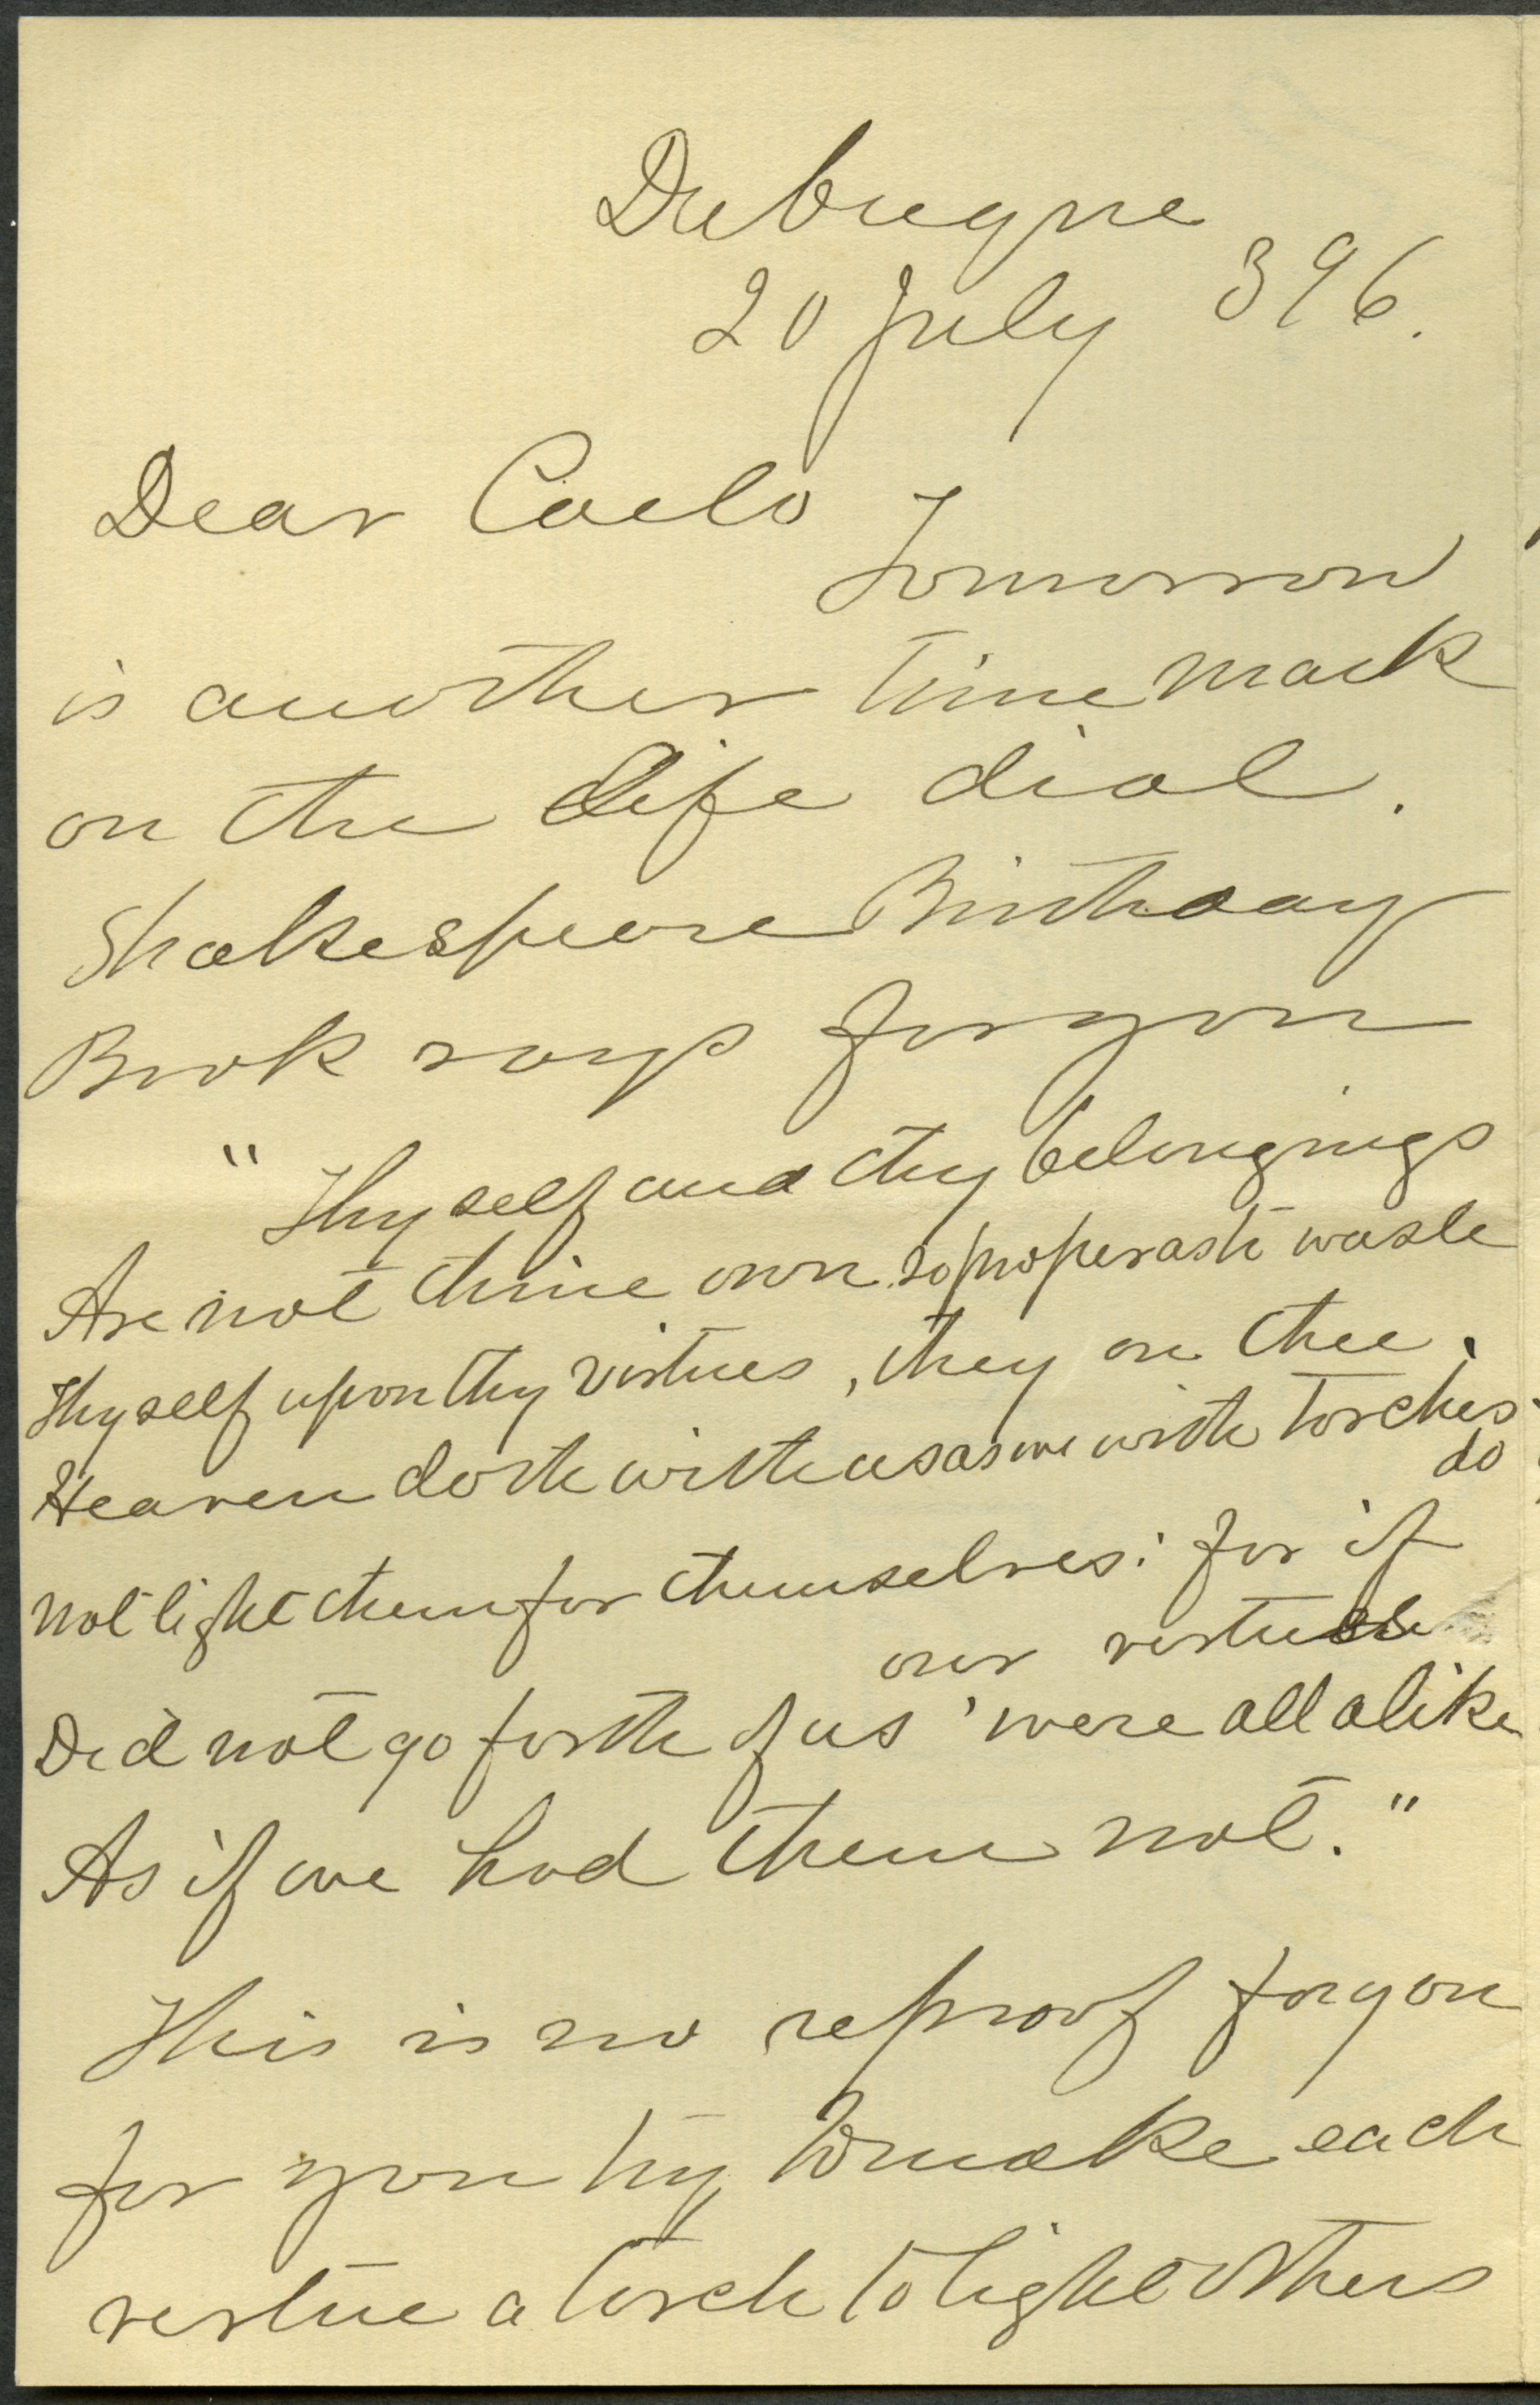 Dubuque
20 July 396.
Dear Coelo
Tomorrow
is another time mark
on the Life dial.
Shakespeare Birthday
Book says for you
"Thyself and thy belongings
Are not thine own so proper as to waste
Thyself upon thy virtues, they on thee.
Heaven doth with us as we with torches
do
not light them for themselves: for if
our virtues
Did not go forth of us 'were all alike
As if we had them not."
This is no reproof for you
for you try to make each
virtue a torch to light others